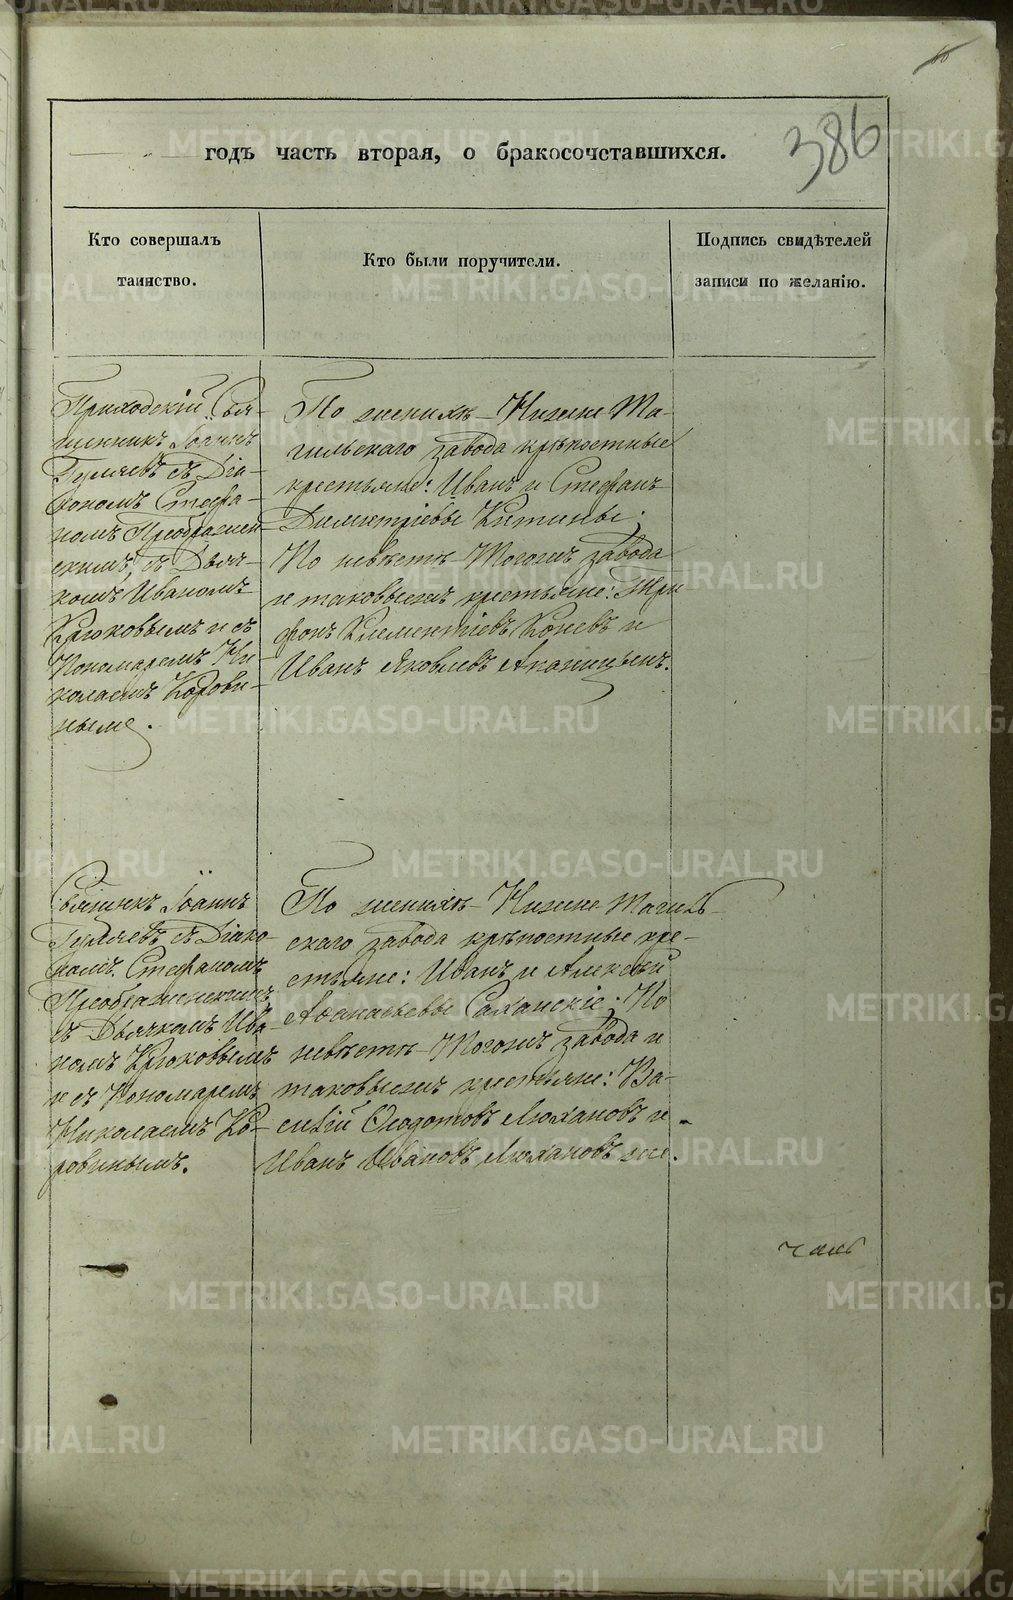 386
годъ часть вторая, о бракосочетавшихся.
Кто совершалъ
таинство.
Кто были поручители.
Подпись свидѣтелей
записи по желанію.
Приходскій Свя-
щенникъ Іоаннъ
Гуляевъ съ Діа-
кономъ Стефа-
номъ Преображен-
скимъ, съ Дьяч-
комъ Иваномъ
Крюковымъ и съ
Пономаремъ Ни-
колаемъ Корови-
нымъ.
По женихѣ – Нижне Та-
гильскаго завода крѣпостные
крестьяне: Иванъ и Стефанъ
Димитріевы Китины.
По невѣстѣ – Тогожъ завода
и таковыежъ крестьяне: Три
фонъ Климентіевъ Коневъ и
Иванъ Яковлевъ Ананьинъ.
Священникъ Іоаннъ
Гуляевъ съ Діако-
номъ Стефаномъ
Преображенскимъ,
съ Дьячкомъ Ива-
номъ Крюковымъ
и съ Пономаремъ
Николаемъ Ко-
ровинымъ.
По женихѣ – Нижне Тагиль-
скаго завода крѣпостные кре-
стьяне: Иванъ и Алексѣй
Афанасьевы Саланскіе; По
невѣстѣ – Тогожъ завода и
таковыежъ крестьяне: Ва-
силій Ѳедотовъ Люхановъ и
Иванъ Ивановъ Люхановъ же.
METRIKI.GASO-URAL.RU